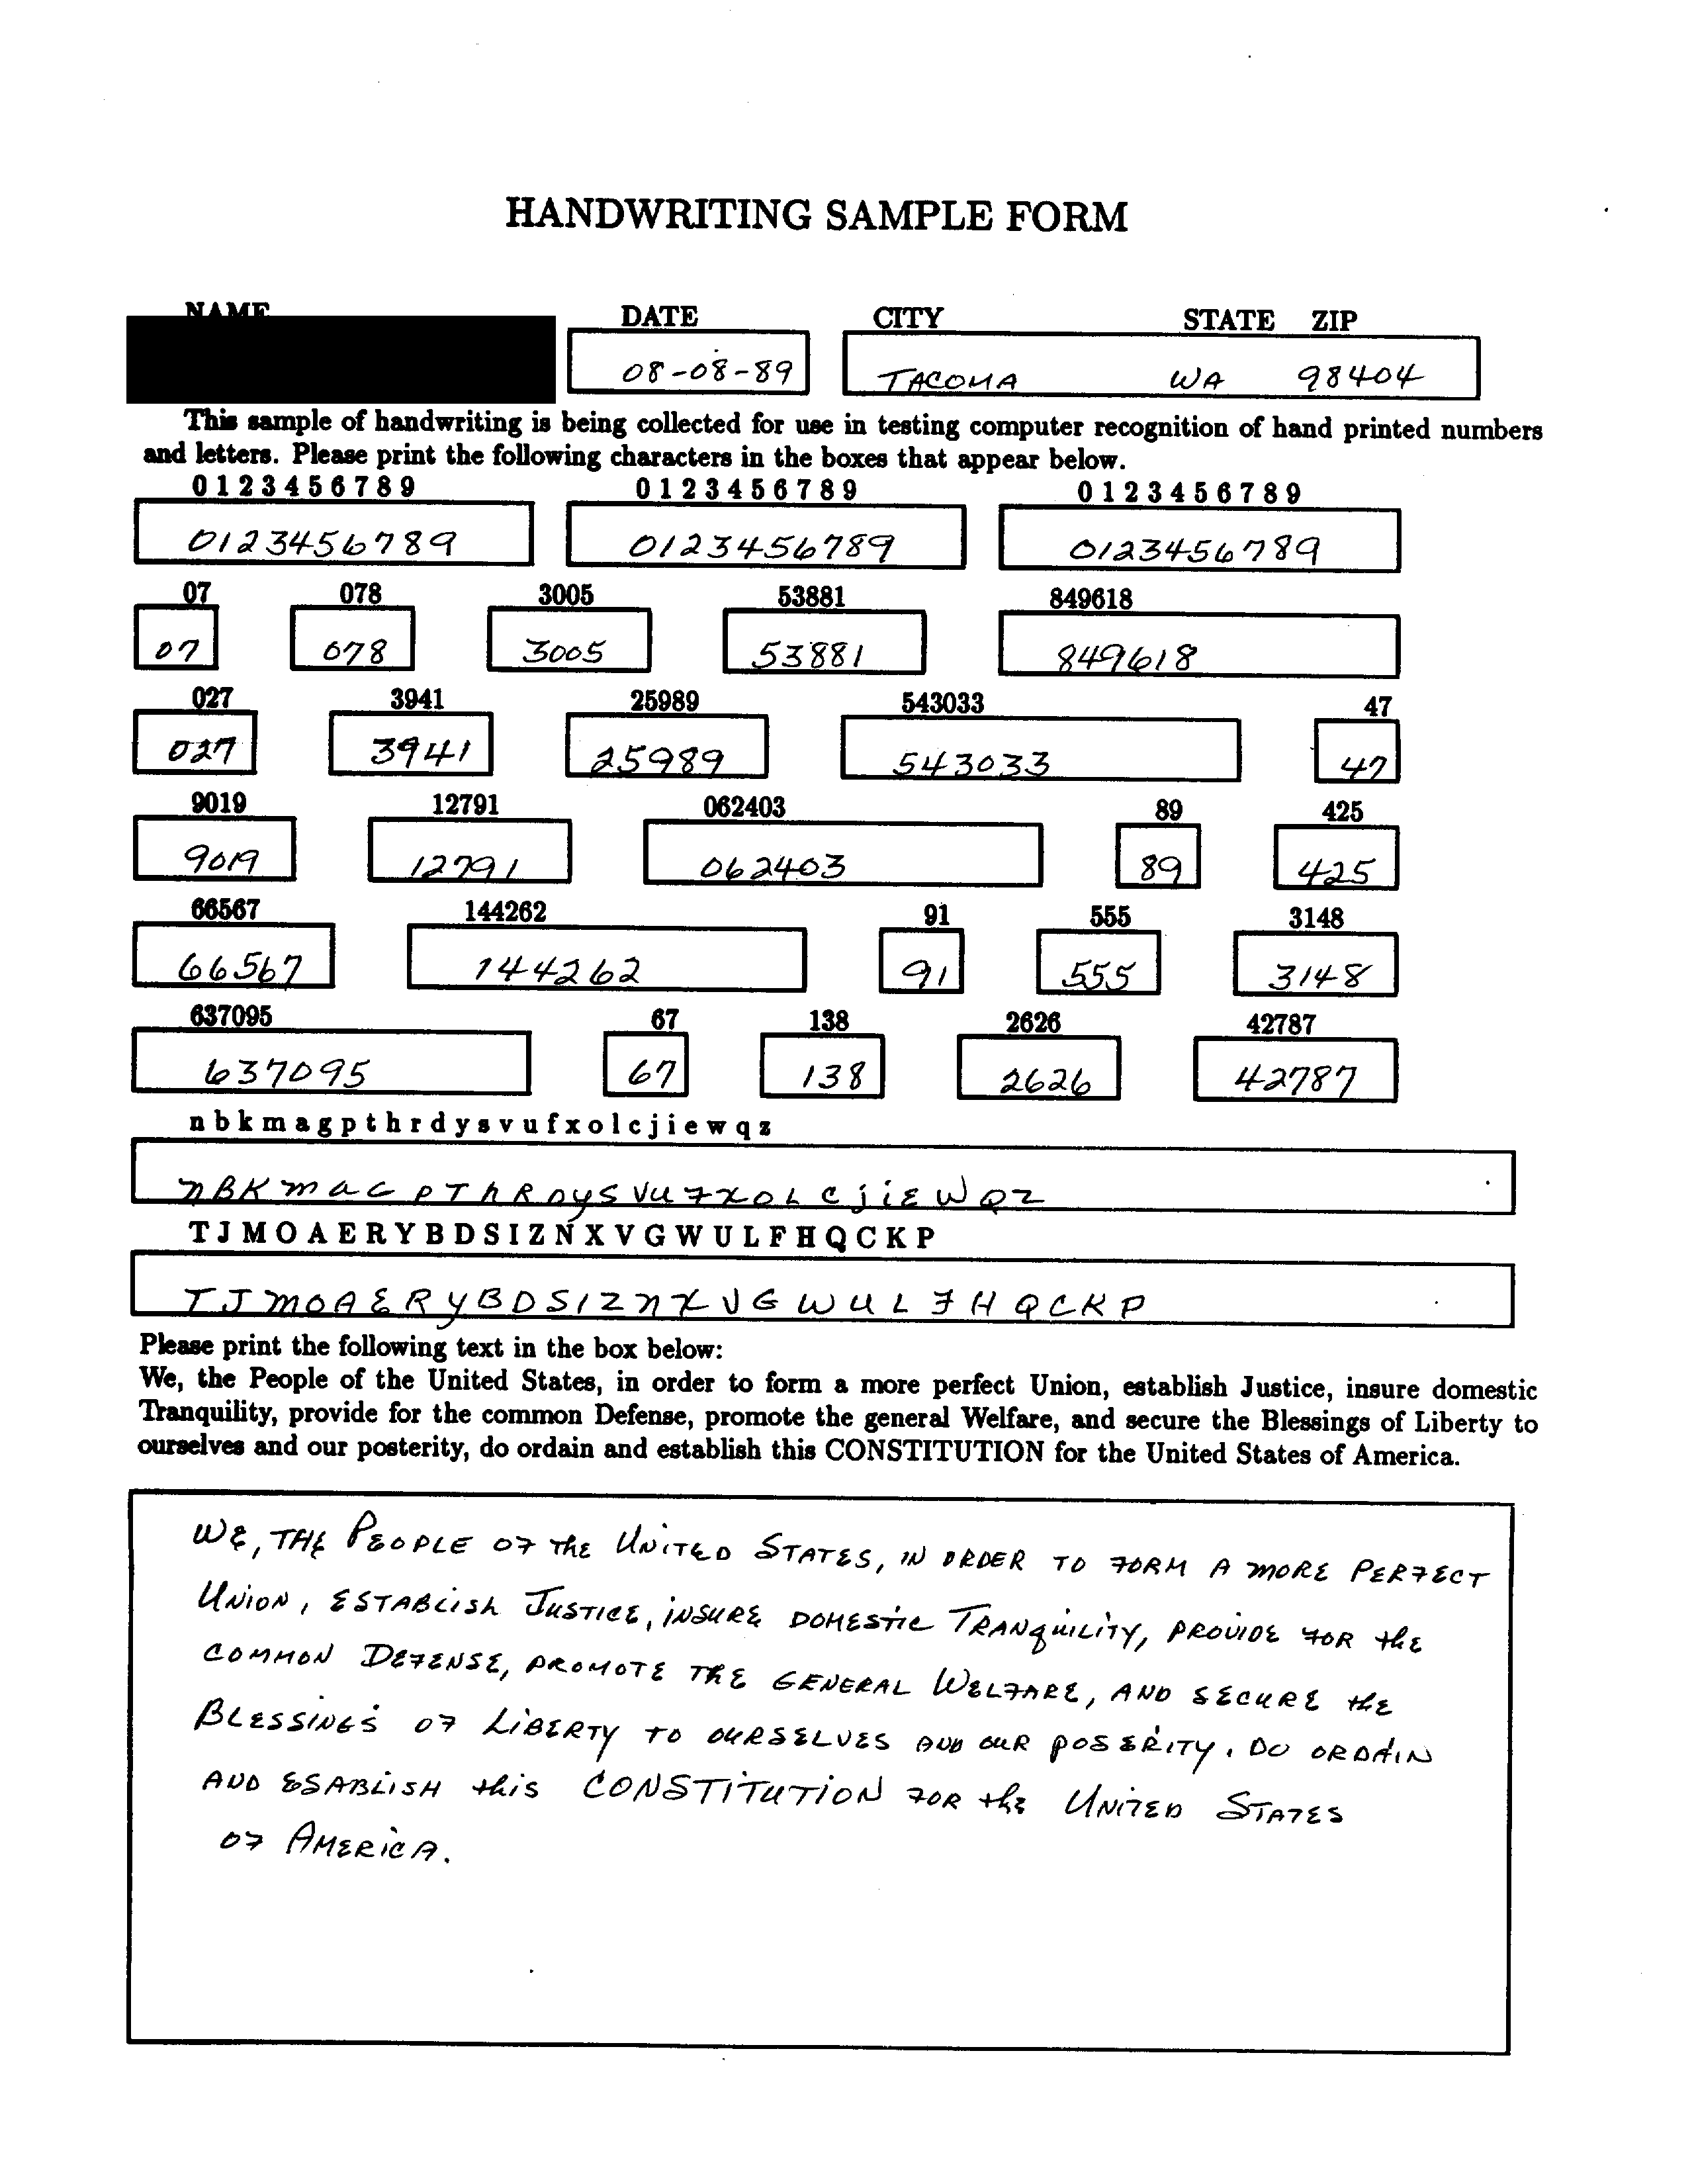 HANDWRITING SAMPLE FORM
NAME DATE CITY STATE ZIP
08-08-89 TACOMA WA 98404
This sample of handwriting is being collected for use in testing computer recognition of hand printed numbers
and letters. Please print the following characters in the boxes that appear below.
0 1 2 3 4 5 6 7 8 9 0 1 2 3 4 5 6 7 8 9 0 1 2 3 4 5 6 7 8 9
0123456789 0123456789 0123456789
07 078 3005 53881 849618
07 078 3005 53881 849618
027 3941 25989 543033 47
027 3941 25989 543033 47
9019 12791 062403 89 425
9019 12791 062403 89 425
66567 144262 91 555 3148
66567 144262 91 555 3148
637095 67 138 2626 42787
637095 67 138 2626 42787
n b k m a g p t h r d y s v u f x o l c j i e w q z
n B K m a G P T h R D y S V U F X O L C j i E W Q Z
T J M O A E R Y B D S I Z N X V G W U L F H Q C K P
T J M O A E R Y B D S I Z N X V G W U L F H Q C K P
Please print the following text in the box below:
We, the People of the United States, in order to form a more perfect Union, establish Justice, insure domestic
Tranquility, provide for the common Defense, promote the general Welfare, and secure the Blessings of Liberty to
ourselves and our posterity, do ordain and establish this CONSTITUTION for the United States of America.
WE, THE PEOPLE OF THE UNITED STATES, IN ORDER TO FORM A MORE PERFECT
UNION, ESTABLISH JUSTICE, INSURE DOMESTIC TRANQUILITY, PROVIDE FOR the
COMMON DEFENSE, PROMOTE THE GENERAL WELFARE, AND SECURE the
BLESSINGS OF LIBERTY TO OURSELVES AND OUR POSERITY, DO ORDAIN
AND ESABLISH this CONSTITUTION FOR the UNITED STATES
OF AMERICA.